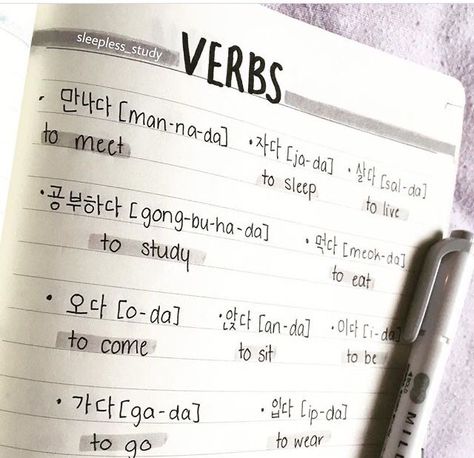 sleepless_study
VERBS
· 만나다 [man-na-da]
to meet
· 자다 [ja-da]
to sleep
· 살다 [sal-da]
to live
· 공부하다 [gong-bu-ha-da]
to study
· 먹다 [meok-da]
to eat
· 오다 [o-da]
to come
· 앉다 [an-da]
to sit
· 이다 [i-da]
to be
· 가다 [ga-da]
to go
· 입다 [ip-da]
to wear
MIL